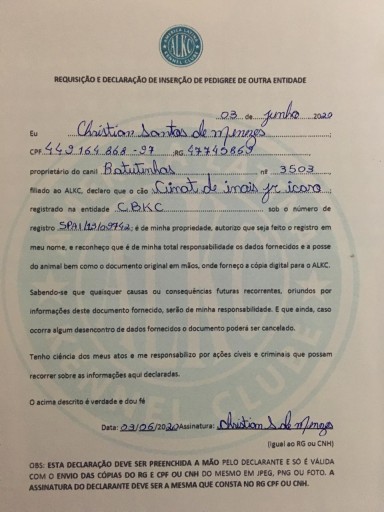 AMERICA LATINA
ALKC
KENNEL CLUBE
REQUISIÇÃO E DECLARAÇÃO DE INSERÇÃO DE PEDIGREE DE OUTRA ENTIDADE
03 de junho 2020
Eu Christian Santos de Menezes
CPF 449.164.868-97 ;RG 47745869
proprietário do canil Batutinhas nº 3503
filiado ao ALKC, declaro que o cão Cinat de inais jr icaro
registrado na entidade CBKC sob o número de
registro SPAI/19/09742; é de minha propriedade, autorizo que seja feito o registro em
meu nome, e reconheço que é de minha total responsabilidade os dados fornecidos e a posse
do animal bem como o documento original em mãos, onde forneço a cópia digital para o ALKC.
Sabendo-se que quaisquer causas ou consequências futuras recorrentes, oriundos por
informações deste documento fornecido, serão de minha responsabilidade. E que ainda, caso
ocorra algum desencontro de dados fornecidos o documento poderá ser cancelado.
Tenho ciência dos meus atos e me responsabilizo por ações cíveis e criminais que possam
recorrer sobre as informações aqui declaradas.
O acima descrito é verdade e dou fé
Data: 03/06/2020 Assinatura: Christian S de Menezes
(Igual ao RG ou CNH)
OBS: ESTA DECLARAÇÃO DEVE SER PREENCHIDA A MÃO PELO DECLARANTE E SÓ É VÁLIDA
COM O ENVIO DAS CÓPIAS DO RG E CPF OU CNH DO MESMO EM JPEG, PNG OU FOTO. A
ASSINATURA DO DECLARANTE DEVE SER A MESMA QUE CONSTA NO RG CPF OU CNH.